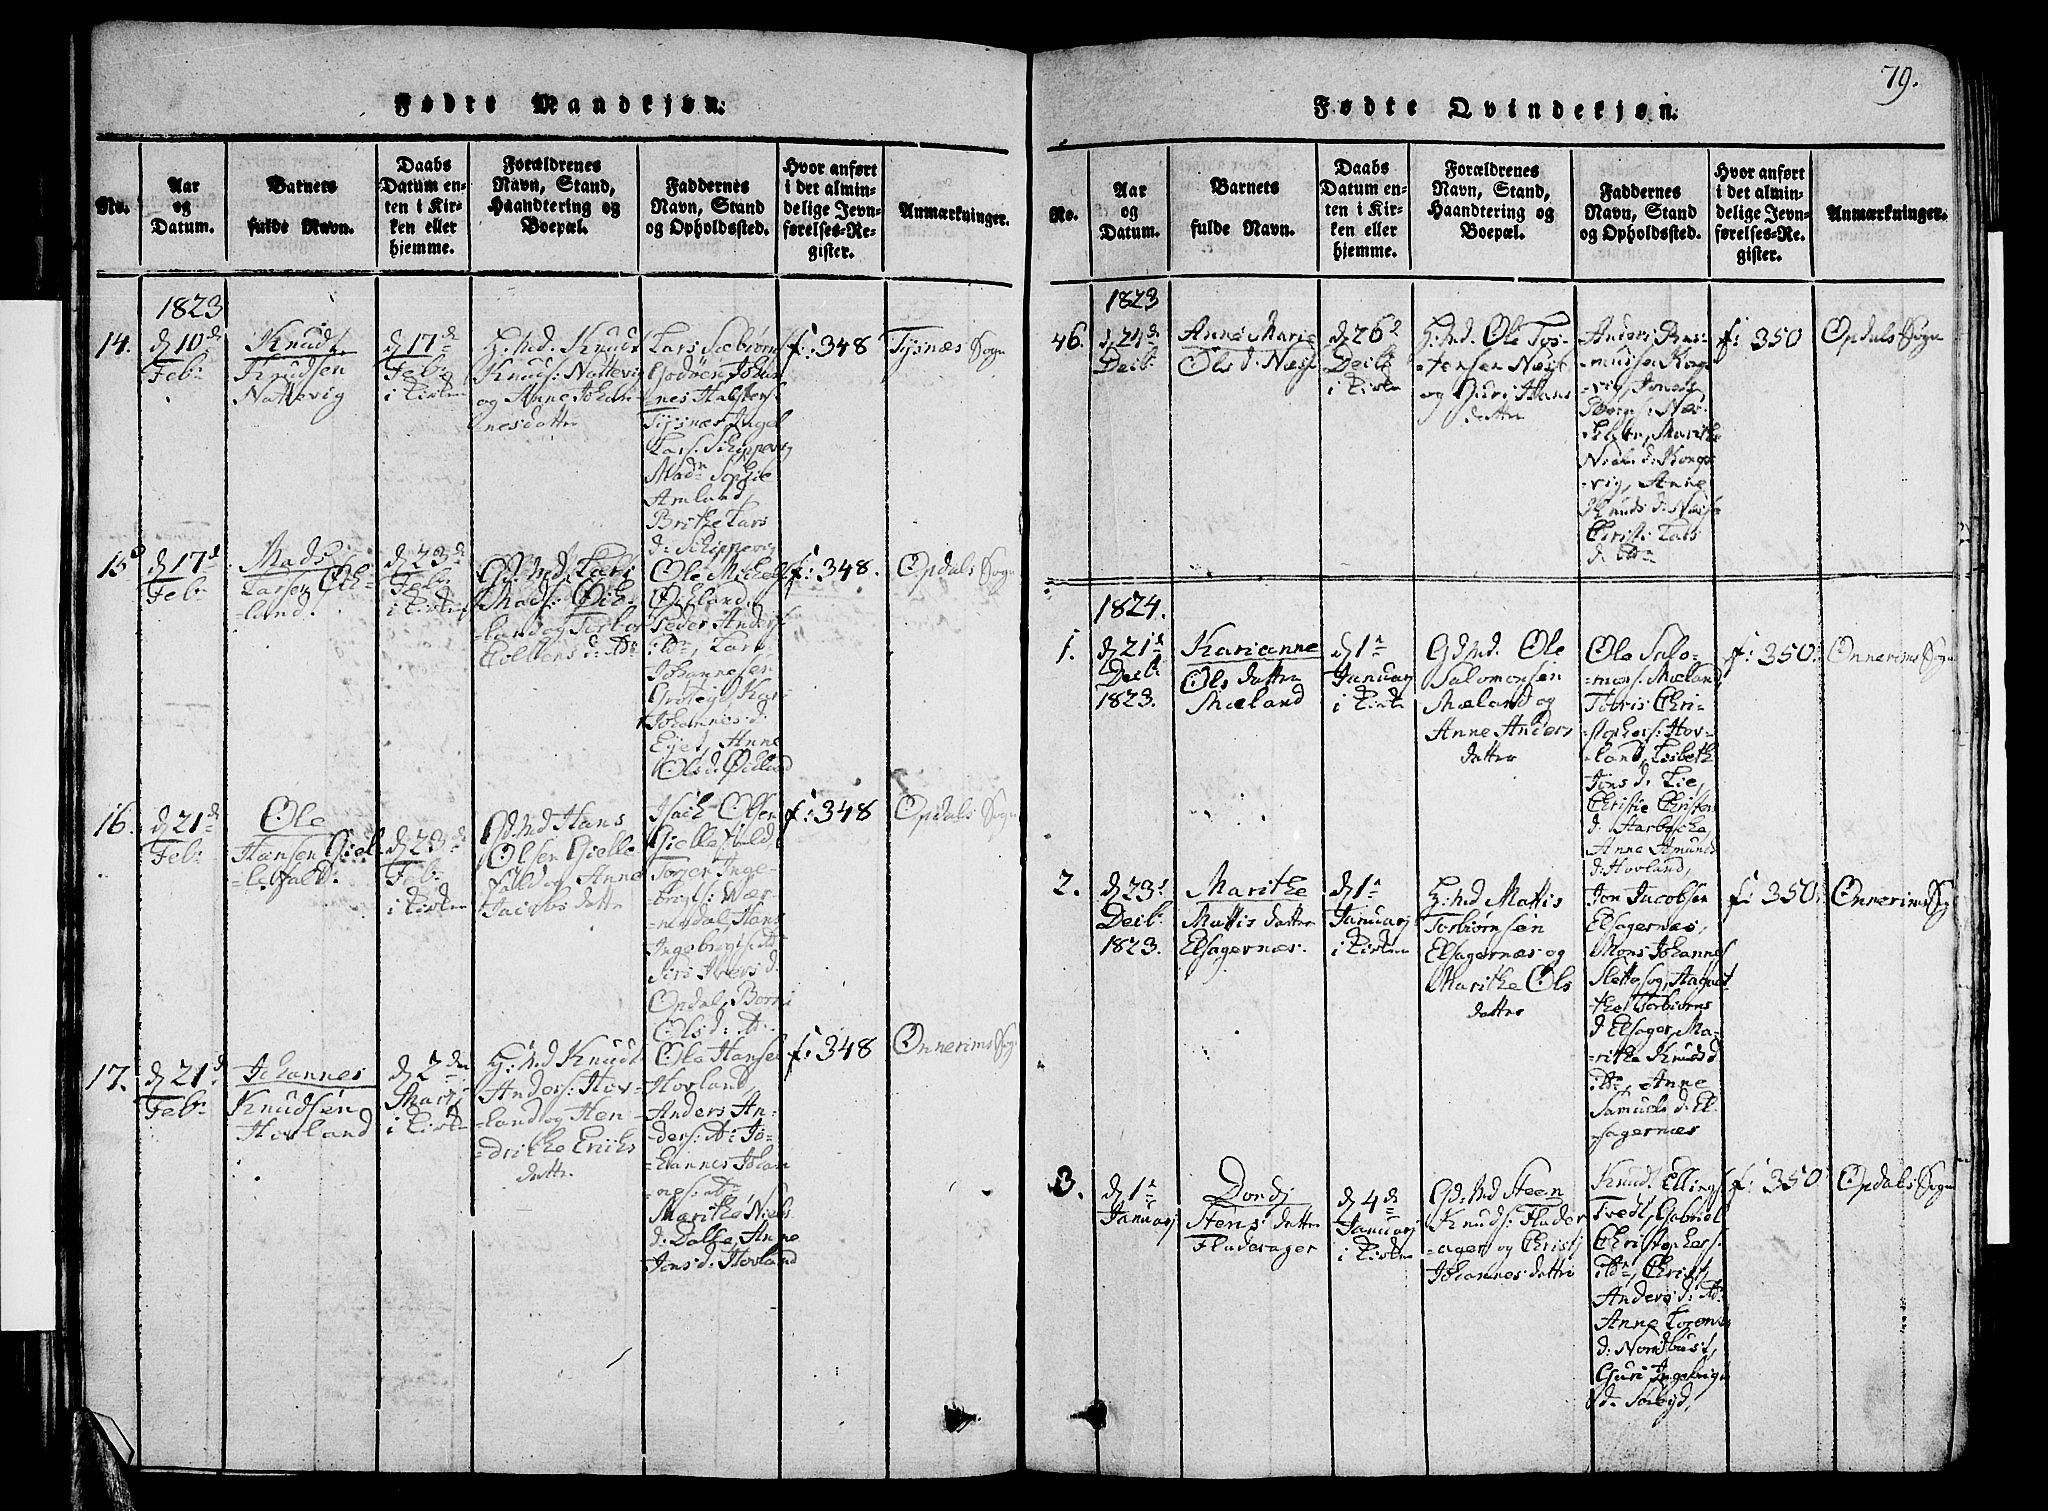 79.
Fødte Mandkjøn.
No.
Aar
og
Datum.
Barnets
fulde Navn.
Daabs
Datum en-
ten i Kir-
ken eller
hjemme.
Forældrenes
Navn, Stand,
Haandtering og
Boepæl.
Faddernes
Navn, Stand
og Opholdssted.
Hvor anført
i det almin-
delige Jevn-
førelses-Re-
gister.
Anmærkninger.
1823
14.
d 10de
Feb:
Knud
Knudsen
Nattevig
d 17de
Feb:
i Kirken
H:md. Knud
Knuds: Nattevig
og Anne Johan-
nesdatter
Lars
Godøen, Johan
nes Halsteens:
Tysnæs, Ingel
Lars: Schippevig
Madm Sophie
Amland,
Brithe Lars
d: Schippevig
f: 348
Tysnæs Sogn
15
d 17de
Feb:
Mads
Larsen Øk-
-land.
d 23de
Feb:
i Kirken
Gd: Md. Lars
Mads: Øk-
-land og Torbor
d:
Ole Michels
Økland,
Peder Anders
itm, Lars
Johannesen
Kari
Johannes d:
Eyet, Anne
Ols d: Økland
f: 348.
Opdals Sogn
16.
d 21de
Feb:
Ole
Hansen Giel-
-lefald.
d 23de
Feb:
i Kirken
Gd: Md Hans
Olsen Gielle-
fald og Anne
Jacobs datter
Isach Olsen
Giellefald,
Torger Inge-
brigts: Wær-
-nesdal, Hans
Ingebrigts:
Ivers d:
Opdal,
Ols d:
f: 348
Opdals Sogn
17.
d 21de
Feb:
Johannes
Knudsen
Hovland
d 2den
Marti
i Kirken
H: md Knud
Anders: Hov-
-land og Hen-
-drikke Eriks
datter
Ole Hansen
Hovland,
Anders An-
ders: Jo-
-hannes Johan
Marithe Niels
d: Dalle, Anne
Jens d: Hovland
f: 348
Onnerims Sogn
Fødte Qvindekjøn.
No.
Aar
og
Datum.
Barnets
fulde Navn.
Daabs
Datum en-
ten i Kir-
ken eller
hjemme.
Forældrenes
Navn, Stand,
Haandtering og
Boepæl.
Faddernes
Navn, Stand
og Opholdssted.
Hvor anført
i det almin-
delige Jevn-
førelses-Re-
gister.
Anmærkninger.
1823
46.
d 21de
Decb:
Anne Marie
Ols d: Næse
d 26d
Decb:
i Kirken
H: Md. Ole Tos-
-tensen
og Guri Hans
datter
Anders Ras-
-mussen Kong-
-vig,
Marithe
Niels d: Kongs-
-vig, Anne
Knuds d: Næse
Christi Lars
d: itm
f: 350
Opdals Sogn
1824.
1.
d 21de
Decb:
1823.
Karianne
Ols datter
Mæland
d 1te
Januarj
i Kirken
Gdmd. Ole
Salomonsen
Mæland og
Anne Anders
datter
Ole Salo-
-mons: Mæland,
Toris Chri-
-stophers: Hov-
-land, Lisbeth
Jons d: Lie,
Christie Christen
d:
Anne Amunds
d: Hovland,
f: 350.
Onnerims Sogn
2.
d 23d
Decb:
1823.
Marithe
Mattis datter
Elsagernæs.
d 1te
Januarj
i Kirken
H: md Mattis
Torbiørnsen
Elsagernæs og
Marithe Ols
datter
Jon Jacobsen
Elsagernæs,
Mons Johannes
Torbiørns
d Elsager, Ma-
-rithe Knuds d
itm, Anne
Samuels d: El-
-sagernæs
f: 350.
Onnerims Sog
3.
d 1te
Januarj
Dordj
Stens datter
Fluderager
d 4de
Januarj
i Kirken
Gd: Md Steen
Knuds: Fluder
-ager og Christj
Johannes datter
Knud Ellings
Tvedt, Gabriel
Christophers:
itm, Christj
Anders d: itm
Anne Lorents
d: Nordhust,
Guri Ingebrigts
d.
f: 350
Opdals Sogn